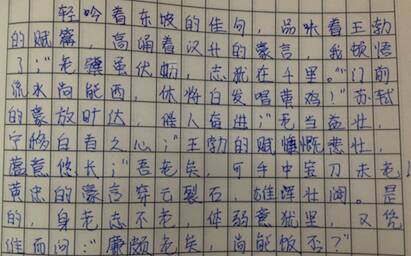 轻吟着东坡的佳句，品味着王勃
的赋，高诵着汉廿的豪言，我顿悟
了；"老骥虽伏枥，志就在千里。"门前
流水尚能西，休将白发唱黄鸡！苏轼
的豪放旷达，催人奋进；"老当益壮，
宁移白首之心；"王勃的赋慷慨悲壮，
蕴意悠长；"吾老矣，可手中宝刀未老！
黄忠的豪言穿云裂石，雄浑壮阔。是
的，身老志不老，体弱意犹，又凭
谁而问："廉颇老矣，尚能饭否？"